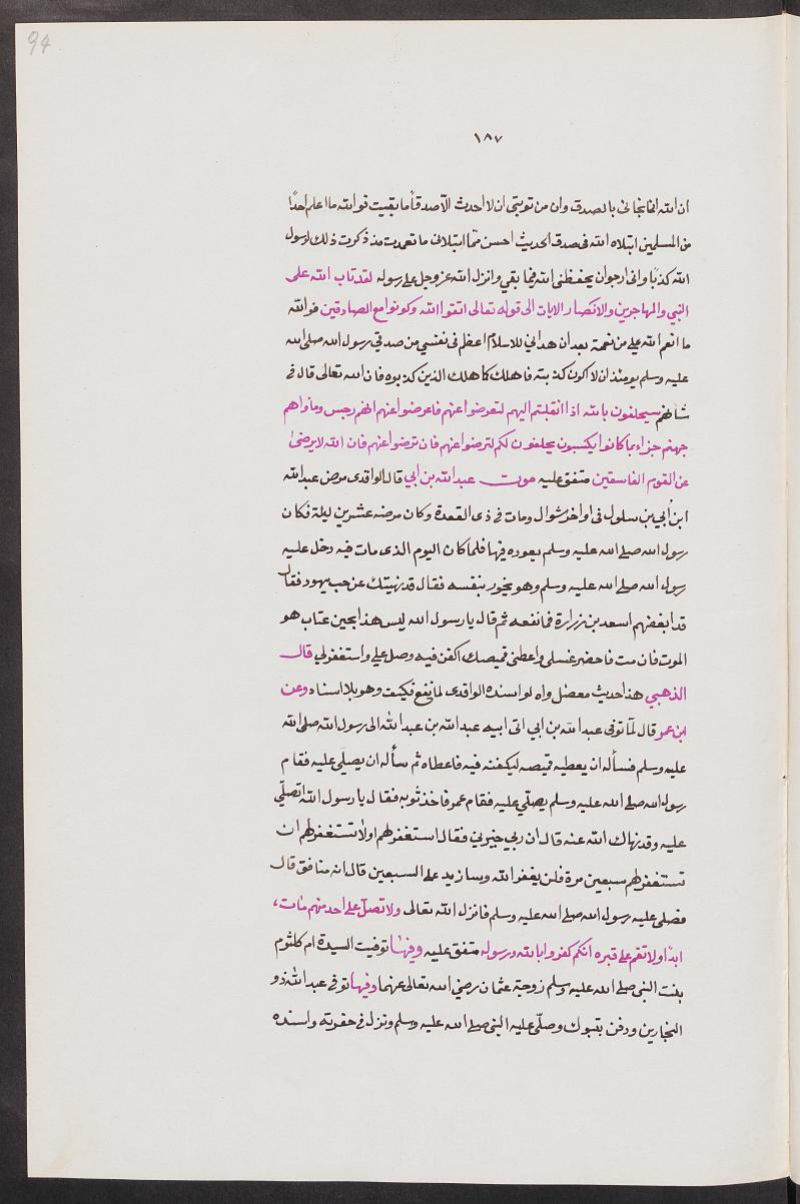 94
١٨٧
ان الله انما نجاني بالصدق وان من توبتي ان لا احدث الا صدقا ما بقيت فوالله ما اعلم احدًا
من المسلمين ابتلاه الله فى صدق الحديث احسن مما ابتلانى ما تعمدت منذ ذكرت ذلك لرسول
الله كذبا وانى ارجو ان يحفظنى الله فيما بقي وانزل الله عز وجل على رسوله لقد تاب الله على
النبي والمهاجرين والانصار الايات الى قوله تعالى اتقوا الله وكونوا مع الصادقين فوالله
ما انعم الله علي من نعمة بعد ان هداني للاسلام اعظم فى نفسي من صدقي رسول الله صلى الله
عليه وسلم يومئذ ان لا اكون كذبته فاهلك كما هلك الذين كذبوه فان الله تعالى قال فى
شانهم سيحلفون بالله اذا انقلبتم اليهم لتعرضوا عنهم فاعرضوا عنهم انهم رجس وماواهم
جهنم جزاء بما كانوا يكسبون يحلفون لكم لترضوا عنهم فان ترضوا عنهم فان الله لا يرضىٰ
عن القوم الفاسقين متفق عليه موت عبد الله بن ابي قال الواقدى مرض عبد الله
ابن ابي بن سلول فى اواخر شوال ومات فى ذى القعدة وكان مرضه عشرين ليلة فكان
رسول الله صلى الله عليه وسلم يعوده فيها فلما كان اليوم الذى مات فيه دخل عليه
رسول الله صلى الله عليه وسلم وهو يجود بنفسه فقال قد نهيتك عن حب يهود فقال
قد ابغضهم اسعد بن زرارة فما نفعه ثم قال يا رسول الله ليس هذا بحين عتاب هو
الموت فان مت فاحضر غسلى واعطنى قميصك اكفن فيه وصل علي واستغفر لي قال
الذهبي هذا حديث معضل واه لو اسنده الواقدى لما نفع فكيف وهو بلا اسناد وعن
ابن عمر قال لمّا توفى عبد الله بن ابي اتى ابنه عبد الله بن عبد الله الى رسول الله صلى الله
عليه وسلم فسأله ان يعطيه قميصه ليكفنه فيه فاعطاه ثم سأله ان يصلى عليه فقام
رسول الله صلى الله عليه وسلم يصلّي عليه فقام عمر فاخذ ثوبه فقال يا رسول الله اتصلّي
عليه وقد نهاك الله عنه قال ان ربي خيرني فقال استغفر لهم اولا تستغفر لهم ان
تستغفر لهم سبعين مرة فلن يغفر الله وسازيد على السبعين قال انه منافق قال
فصلى عليه رسول الله صلى الله عليه وسلم فانزل الله تعالى ولا تصل على احد منهم مات
ابدًا ولا تقم على قبره انهم كفروا بالله ورسوله متفق عليه وفيها توفيت السيدة ام كلثوم
بنت النبى صلى الله عليه وسلم زوجة عثمان رضي الله تعالى عنهما وفيها توفى عبد الله ذو
البجادين ودفن بتبوك وصلّى عليه النبى صلى الله عليه وسلم ونزل فى حفرته واسنده